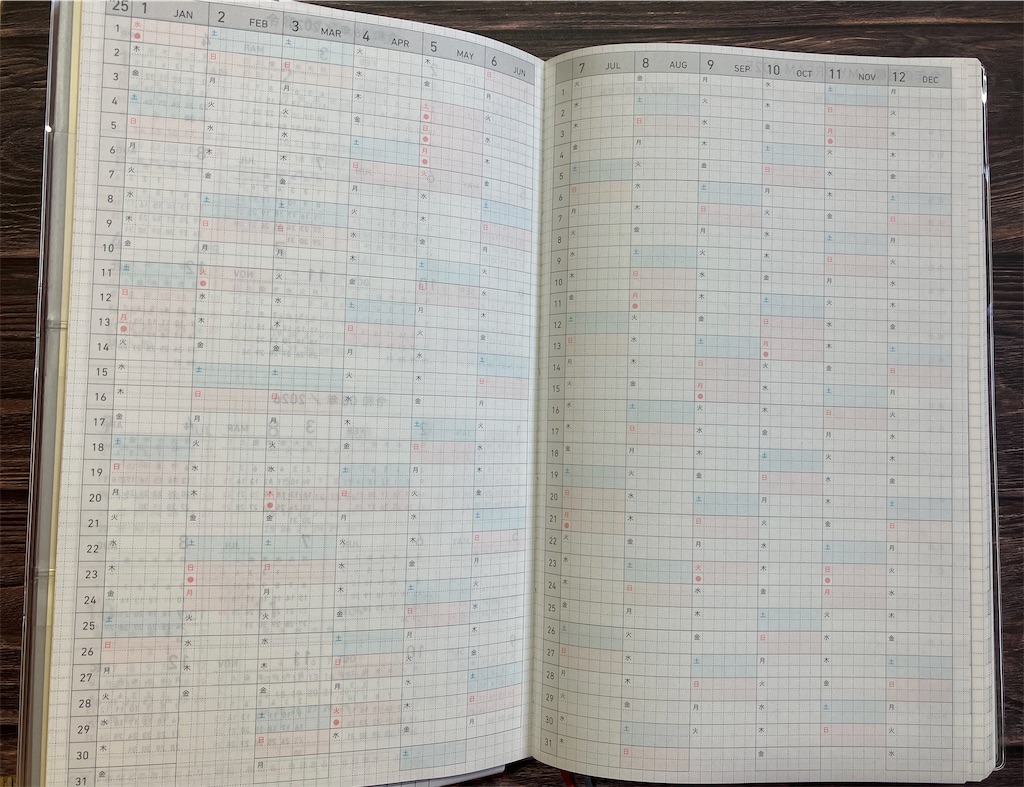 25 1 JAN 2 FEB 3 MAR 4 APR 5 MAY 6 JUN
1 水 土 土 火 木 日
2 木 日 日 水 金 月
3 金 月 月 木 土 火
4 土 火 火 金 日 水
5 日 水 水 土 月 木
6 月 木 木 日 火 金
7 火 金 金 月 水 土
8 水 土 土 火 木 日
9 木 日 日 水 金 月
10 金 月 月 木 土 火
11 土 火 火 金 日 水
12 日 水 水 土 月 木
13 月 木 木 日 火 金
14 火 金 金 月 水 土
15 水 土 土 火 木 日
16 木 日 日 水 金 月
17 金 月 月 木 土 火
18 土 火 火 金 日 水
19 日 水 水 土 月 木
20 月 木 木 日 火 金
21 火 金 金 月 水 土
22 水 土 土 火 木 日
23 木 日 日 水 金 月
24 金 月 月 木 土 火
25 土 火 火 金 日 水
26 日 水 水 土 月 木
27 月 木 木 日 火 金
28 火 金 金 月 水 土
29 水 土 火 木 日
30 木 日 水 金 月
31 金 月 土
7 JUL 8 AUG 9 SEP 10 OCT 11 NOV 12 DEC
1 火 金 月 水 土 月
2 水 土 火 木 日 火
3 木 日 水 金 月 水
4 金 月 木 土 火 木
5 土 火 金 日 水 金
6 日 水 土 月 木 土
7 月 木 日 火 金 日
8 火 金 月 水 土 月
9 水 土 火 木 日 火
10 木 日 水 金 月 水
11 金 月 木 土 火 木
12 土 火 金 日 水 金
13 日 水 土 月 木 土
14 月 木 日 火 金 日
15 火 金 月 水 土 月
16 水 土 火 木 日 火
17 木 日 水 金 月 水
18 金 月 木 土 火 木
19 土 火 金 日 水 金
20 日 水 土 月 木 土
21 月 木 日 火 金 日
22 火 金 月 水 土 月
23 水 土 火 木 日 火
24 木 日 水 金 月 水
25 金 月 木 土 火 木
26 土 火 金 日 水 金
27 日 水 土 月 木 土
28 月 木 日 火 金 日
29 火 金 月 水 土 月
30 水 土 火 木 日 火
31 木 日 金 水